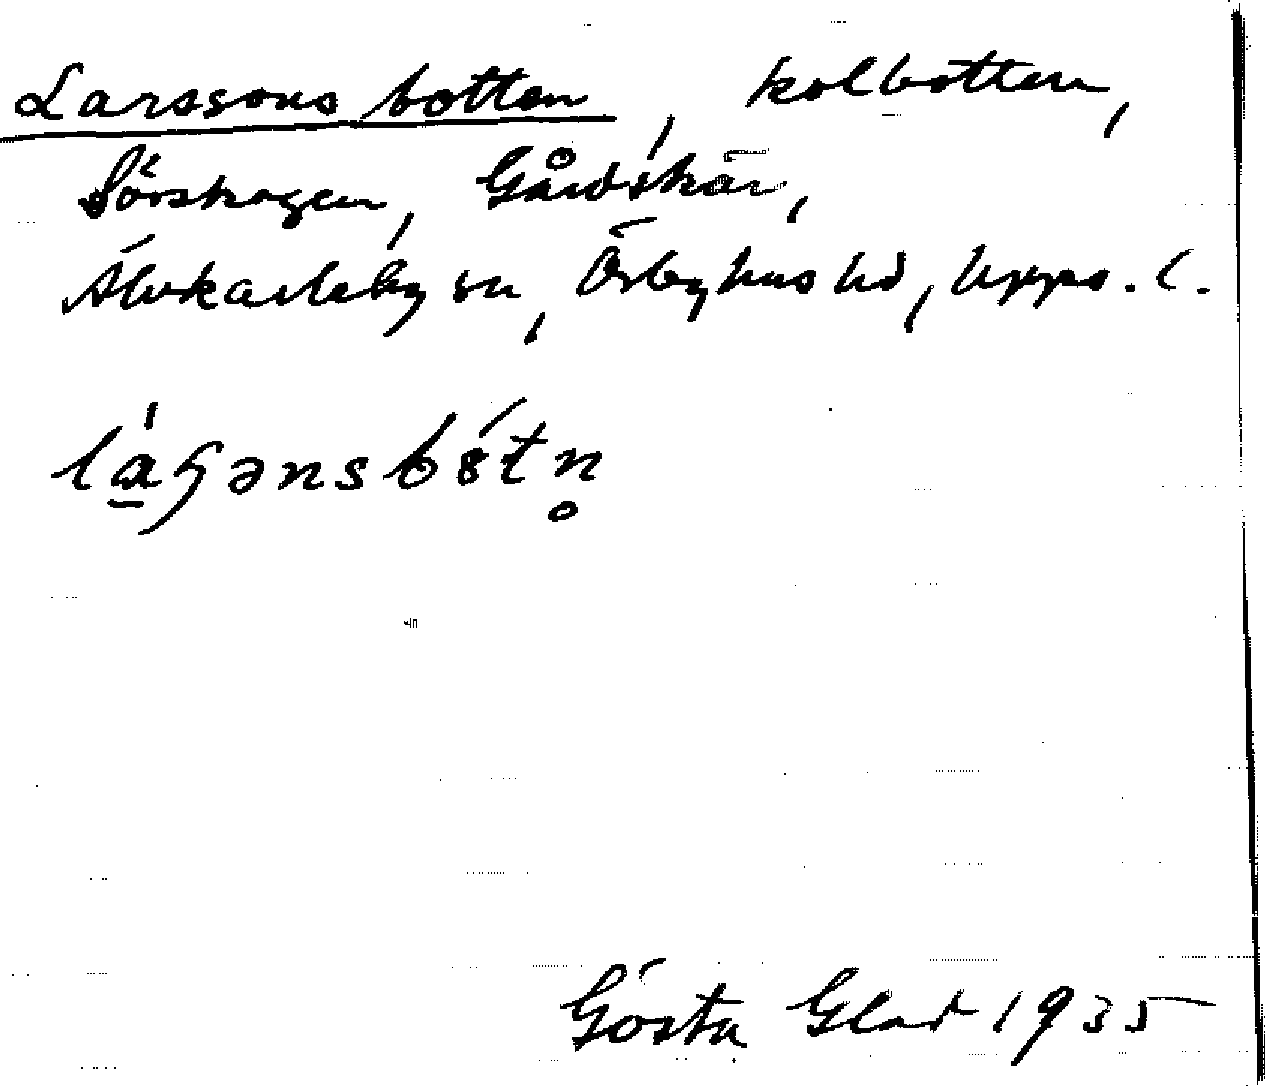 Larssons botten, kolbotten,
Sörskogen, Gårdskär,
Älvkarleby sn, Örbyhus hd, Upps. l.
lásənsbótn̥
Gösta Glad 1935